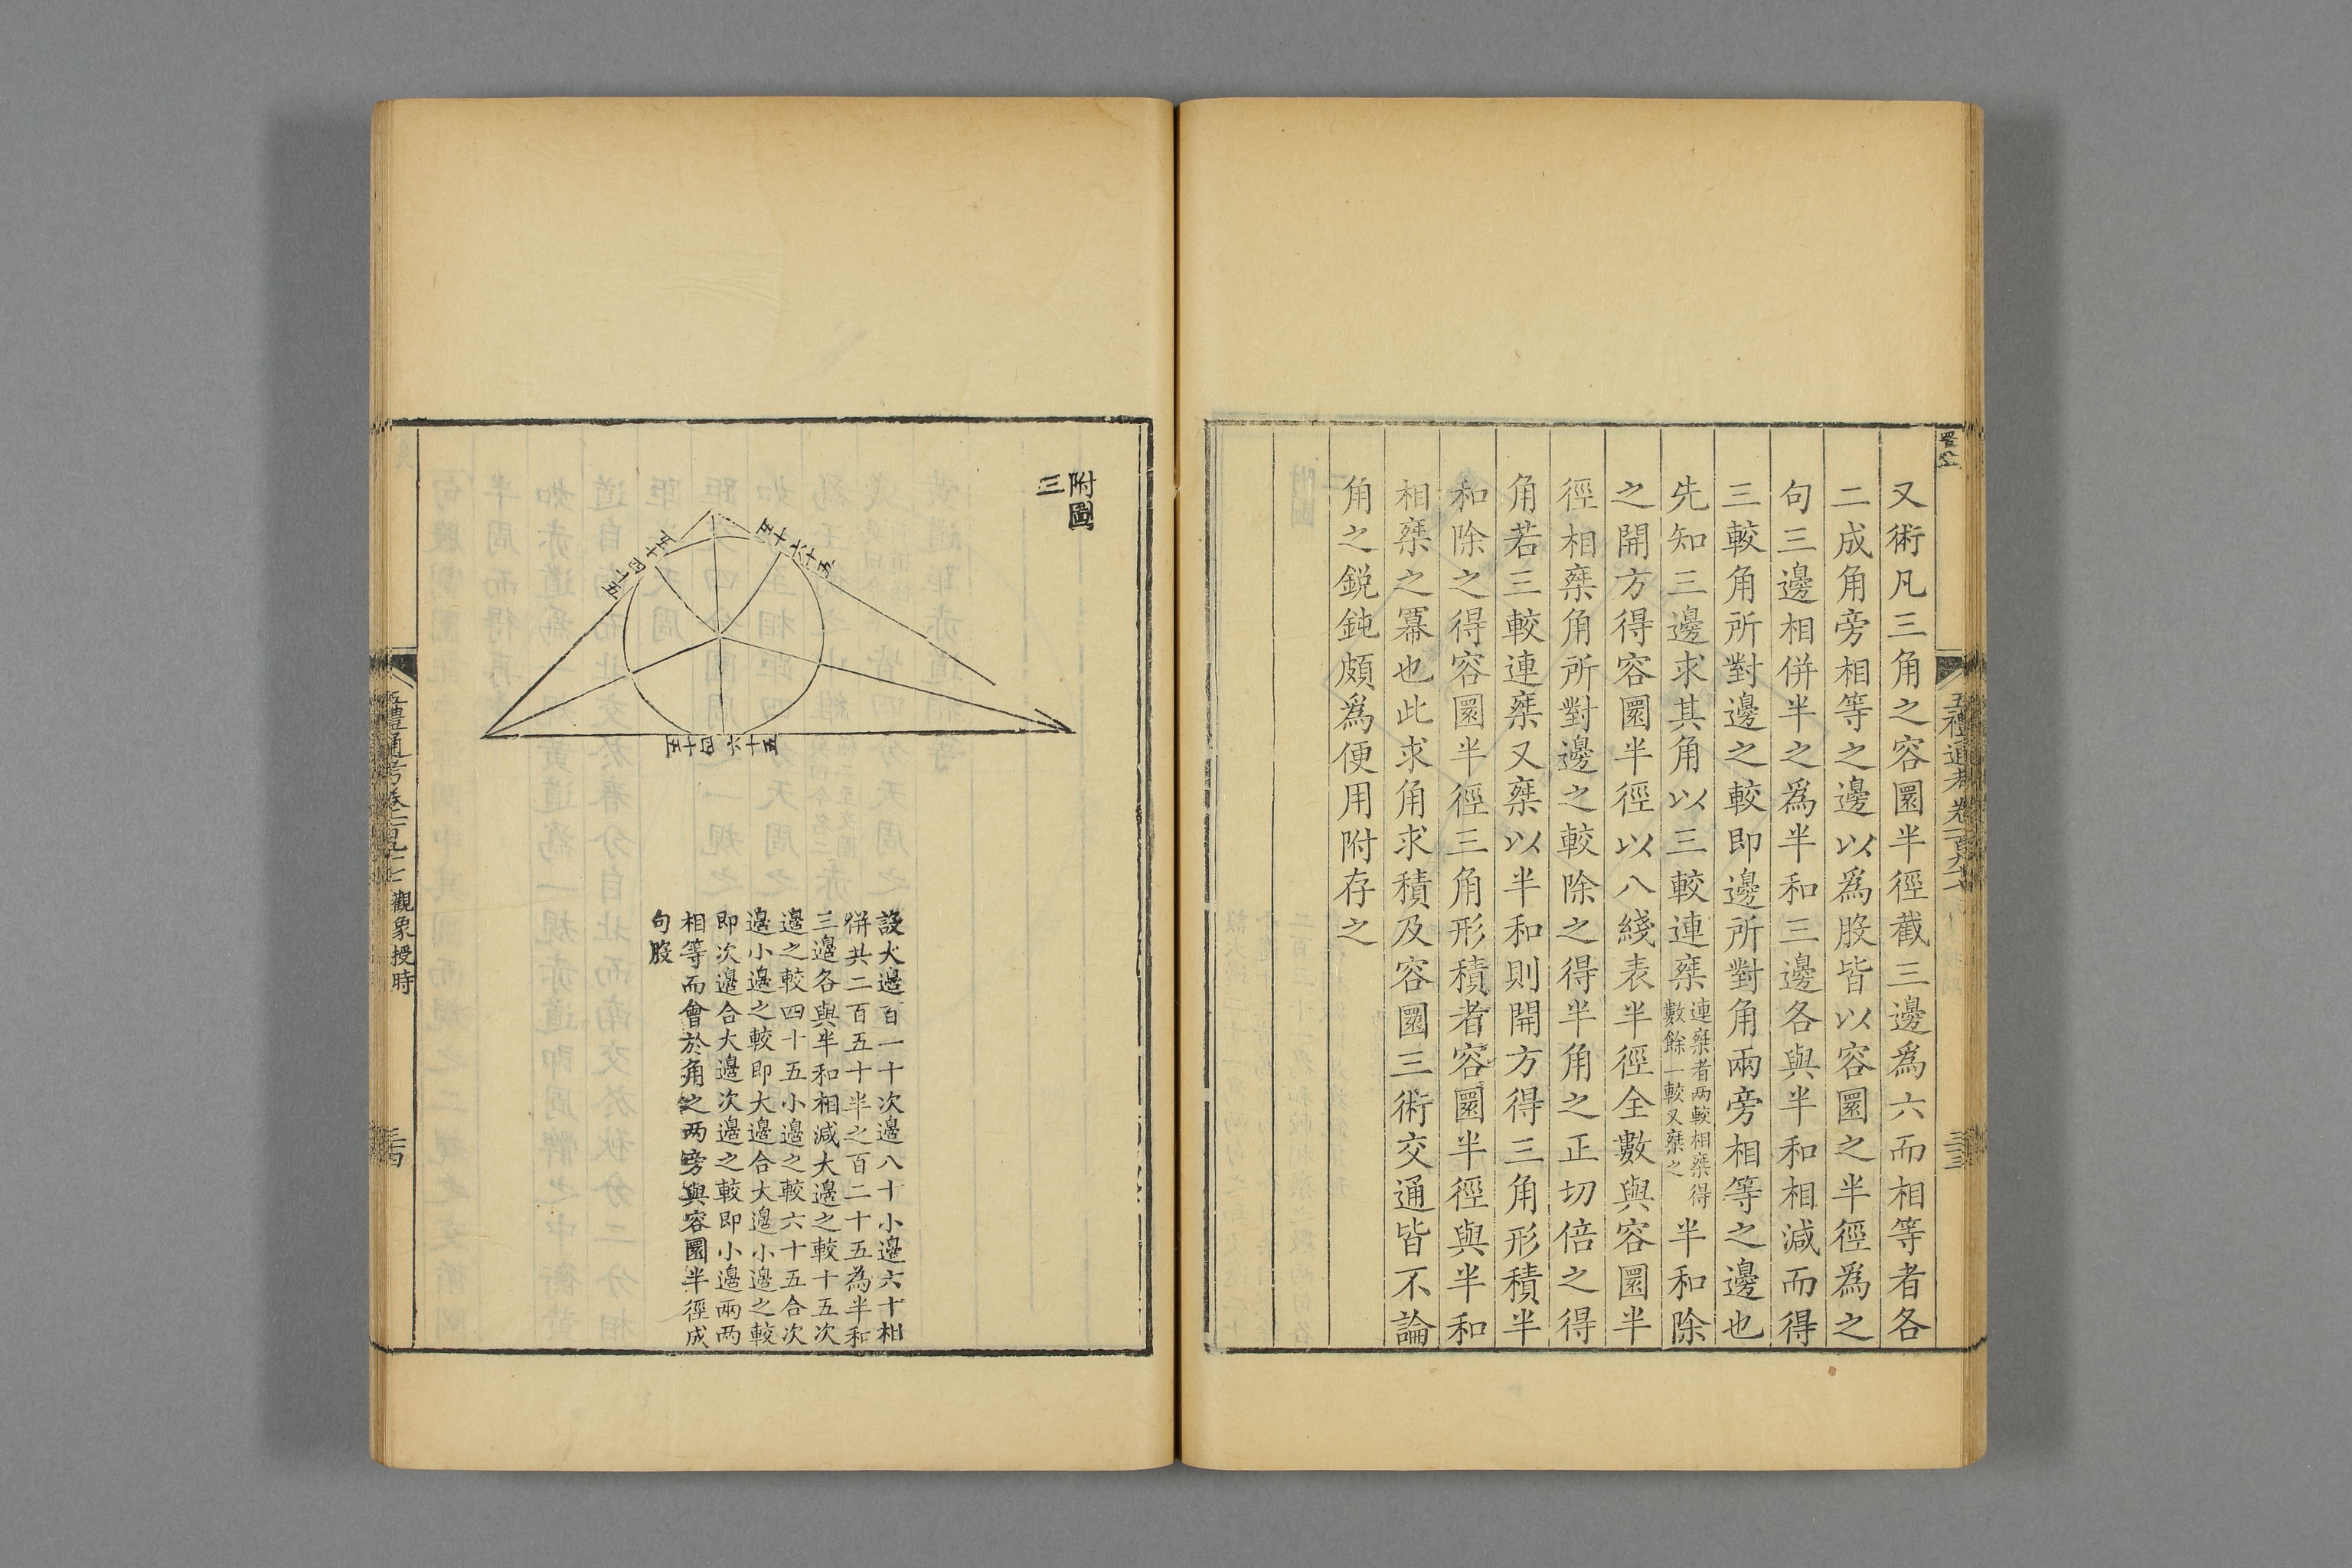 又術凡三角之容圜半徑截三邊爲六而相等者各
二成角旁相等之邊以爲股皆以容圜之半徑爲之
句三邊相併半之爲半和三邊各與半和相減而得
三較角所對邊之較即邊所對角兩旁相等之邊也
先知三邊求其角以三較連椉連椉者两較相椉得數餘一較又椉之半和除
之開方得容圜半徑以八綫表半徑全數與容圜半
徑相椉角所對邊之較除之得半角之正切倍之得
角若三較連椉又椉以半和則開方得三角形積半
和除之得容圜半徑三角形積者容圜半徑與半和
相椉之冪也此求角求積及容圜三術交通皆不論
角之鋭鈍頗爲便用附存之
五禮通考卷一百九十七
三十三
附圖
三
五十四十五
五十六十五
五十四六十五
設大邊百一十次邊八十小邊六十相
併共二百五十半之百二十五為半和
三邊各與半和相減大邊之較十五次
邊之較四十五小邊之較六十五合次
邊小邊之較即大邊合大邊小邊之較
即次邊合大邊次邊之較即小邊兩两
相等而會於角之两旁與容圜半徑成
句股
五禮通考卷一百九十七 觀象授時
三十四